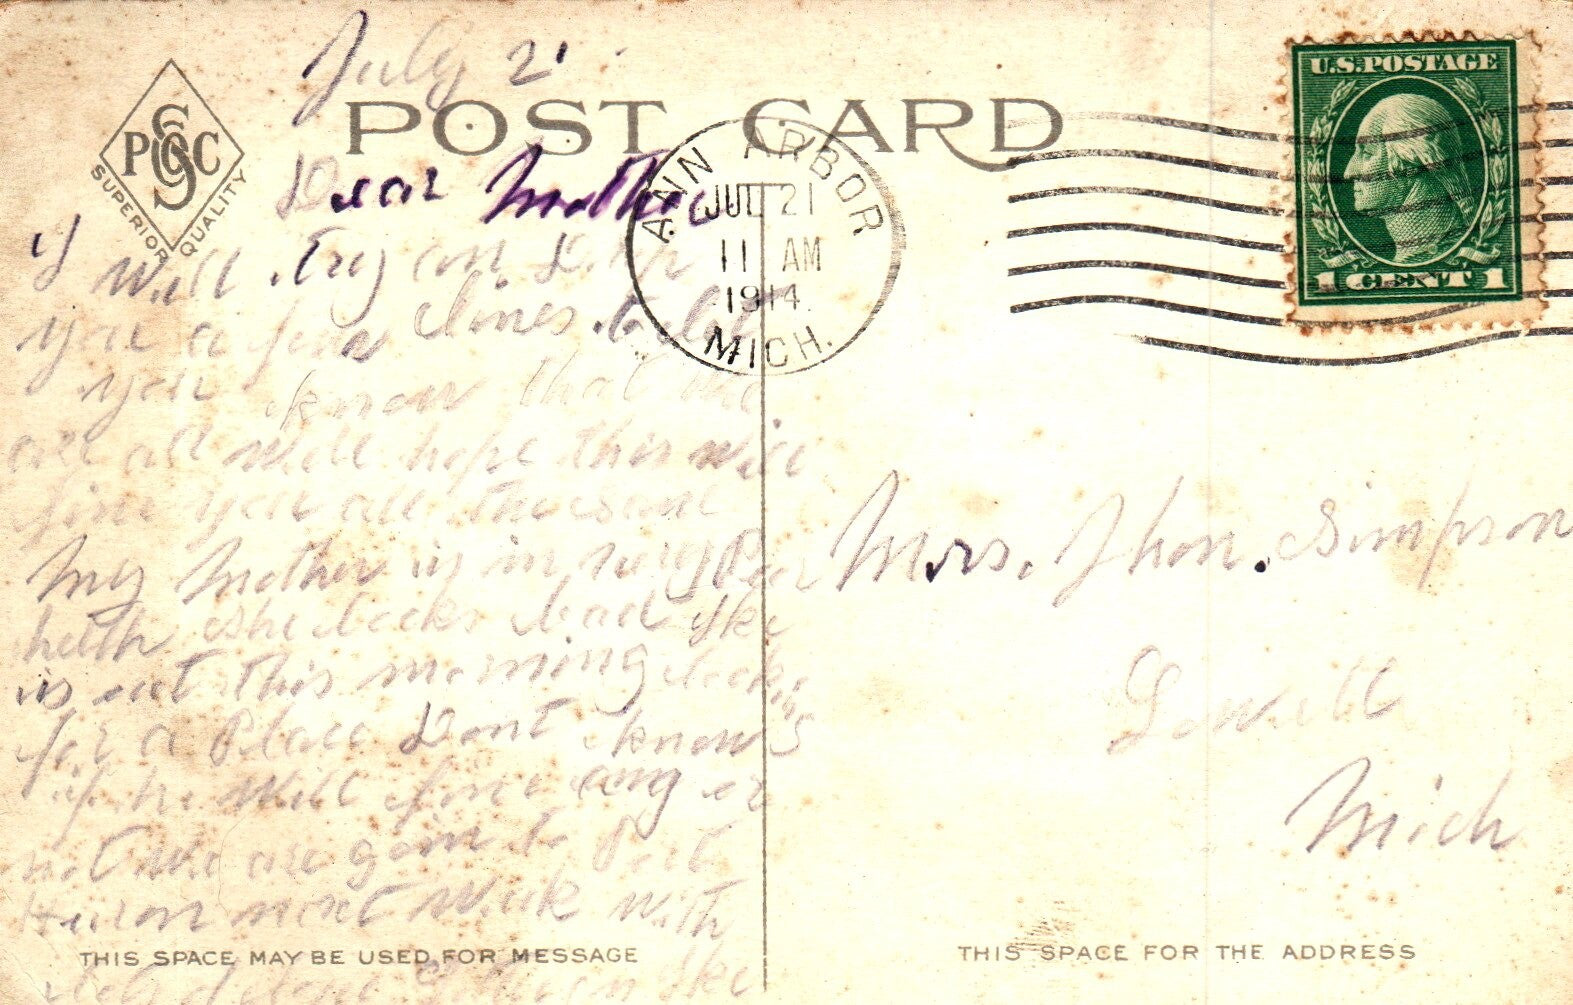 July 21
POST CARD
PSGC
SUPERIOR QUALITY
U.S. POSTAGE
1 CENT 1
ANN ARBOR
JUL 21
11 AM
1914
MICH.
Dear Mother
I Will try an Drop
you a few lines to let
you know that we
are all Well hope this Will
fine you all the same
My Mother is in very Poor
helth She looks bad
is out this morning looking
for a Place Dont know
if he Will fine any or
not We are goin to Port
Huron next Week With
Mrs. Jhon. Simpson
Lowell
Mich
THIS SPACE MAY BE USED FOR MESSAGE
THIS SPACE FOR THE ADDRESS